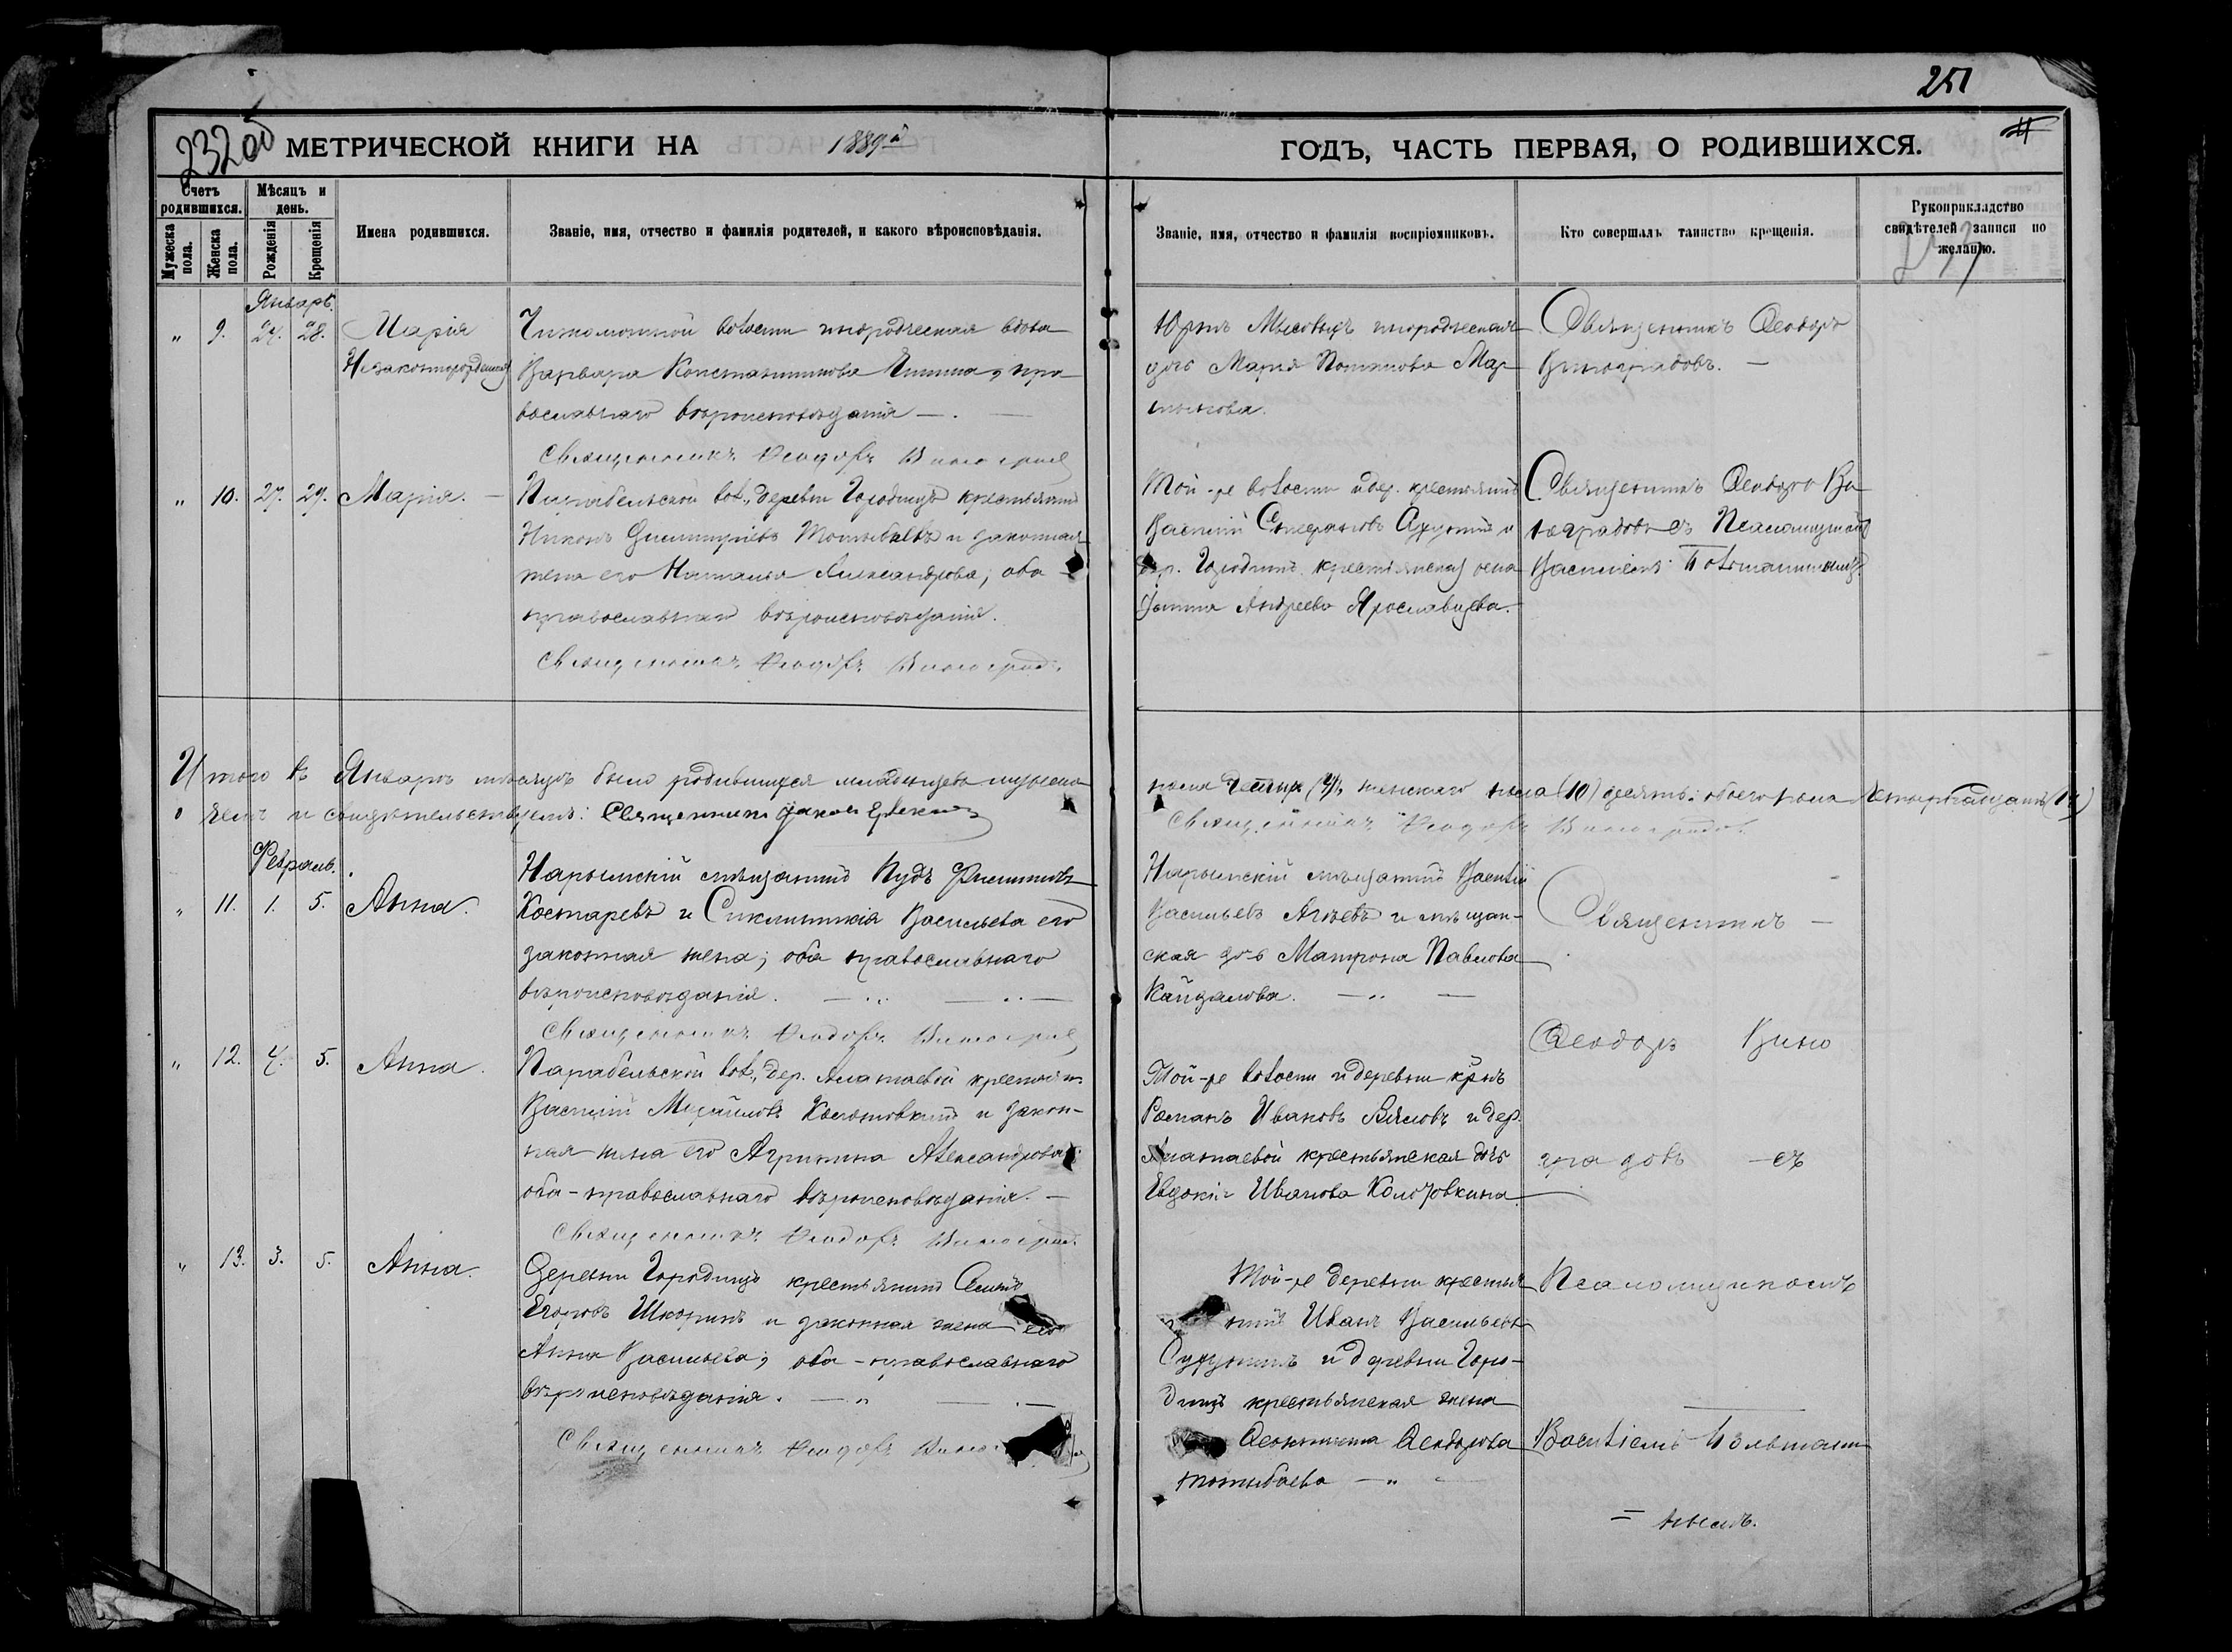 251
23200
МЕТРИЧЕСКОЙ КНИГИ НА 1889й ГОДЪ, ЧАСТЬ ПЕРВАЯ, О РОДИВШИХСЯ.
Счетъ родившихся.
Мужеска пола.
Женска пола.
Мѣсяцъ и день.
Рожденія
Крещенія
Имена родившихся.
Званіе, имя, отчество и фамилія родителей, и какого вѣроисповѣданія.
Званіе, имя, отчество и фамилія воспріемниковъ.
Кто совершалъ таинство крещенія.
Рукоприкладство
свидѣтелей записи по
желанію.
Январь.
" 9. 24. 28. Марія
Незаконнорожденная
волости инородческая вдова
Варвара Константинова пра
вославнаго вѣроисповѣданія —.
Священникъ Ѳеодоръ Виноград
Юртъ инородческая
дочь Марія Мар
тынова.
Священникъ Ѳеодоръ
Виноградовъ. —
" 10. 27. 29. Марія. —
Парабельской вол., деревни Городищъ крестьянинъ
Никонъ Димитріевъ Тотыбаевъ и законная
жена его Наталья Александрова; оба
православнаго вѣроисповѣданія.
Священникъ Ѳеодоръ Виноград.
Той-же волости и дер. крестьянинъ
Василій Стефановъ и
дер. Городищъ крестьянская жена
Андреева Ярославцева.
Священникъ Ѳеодоръ Ви
ноградовъ съ Псаломщикомъ
Василіемъ
Итого въ Январѣ мѣсяцѣ было родившихся младенцевъ мужеска
пола четыре (4), женскаго пола (10) десять; обоего пола четырнадцать (14)
о чемъ и свидѣтельствуемъ: Священникъ
Священникъ Ѳеодоръ Виноградовъ
Февраль.
" 11. 1. 5. Анна.
Нарымскій мѣщанинъ Кудъ Филипповъ
Костаревъ и Сиклитикія Васильева его
законная жена; оба православнаго
вѣроисповѣданія.
Священникъ Ѳеодоръ Виноград
Нарымскій мѣщанинъ Василій
Васильевъ и мѣщан-
ская дочь Матрона Павлова
Кайдалова.
Священникъ —
" 12. 4. 5. Анна.
Парабельской вол., дер. Алатаевой крестьян.
Василій Михайловъ Колотовкинъ и закон-
ная жена его Агрипина Александрова;
оба - православнаго вѣроисповѣданія. —
Священникъ Ѳеодоръ Виноград.
Той-же волости и деревни кр-нъ
Романъ Ивановъ Вяловъ и дер.
Алатаевой крестьянская дочь
Евдокія Иванова Колотовкина
Ѳеодоръ Вино
градовъ — съ
" 13. 3. 5. Анна.
Деревни Городищъ крестьянинъ
Егоровъ Шкоринъ и законная жена его
Анна Васильева; оба - православнаго
вѣроисповѣданія.
Священникъ Ѳеодоръ
Той-же деревни крестья
нинъ Иванъ Васильевъ
и деревни Горо-
дищъ крестьянская жена
Ѳеодорова
Тотыбаева
Псаломщикомъ
Василіемъ